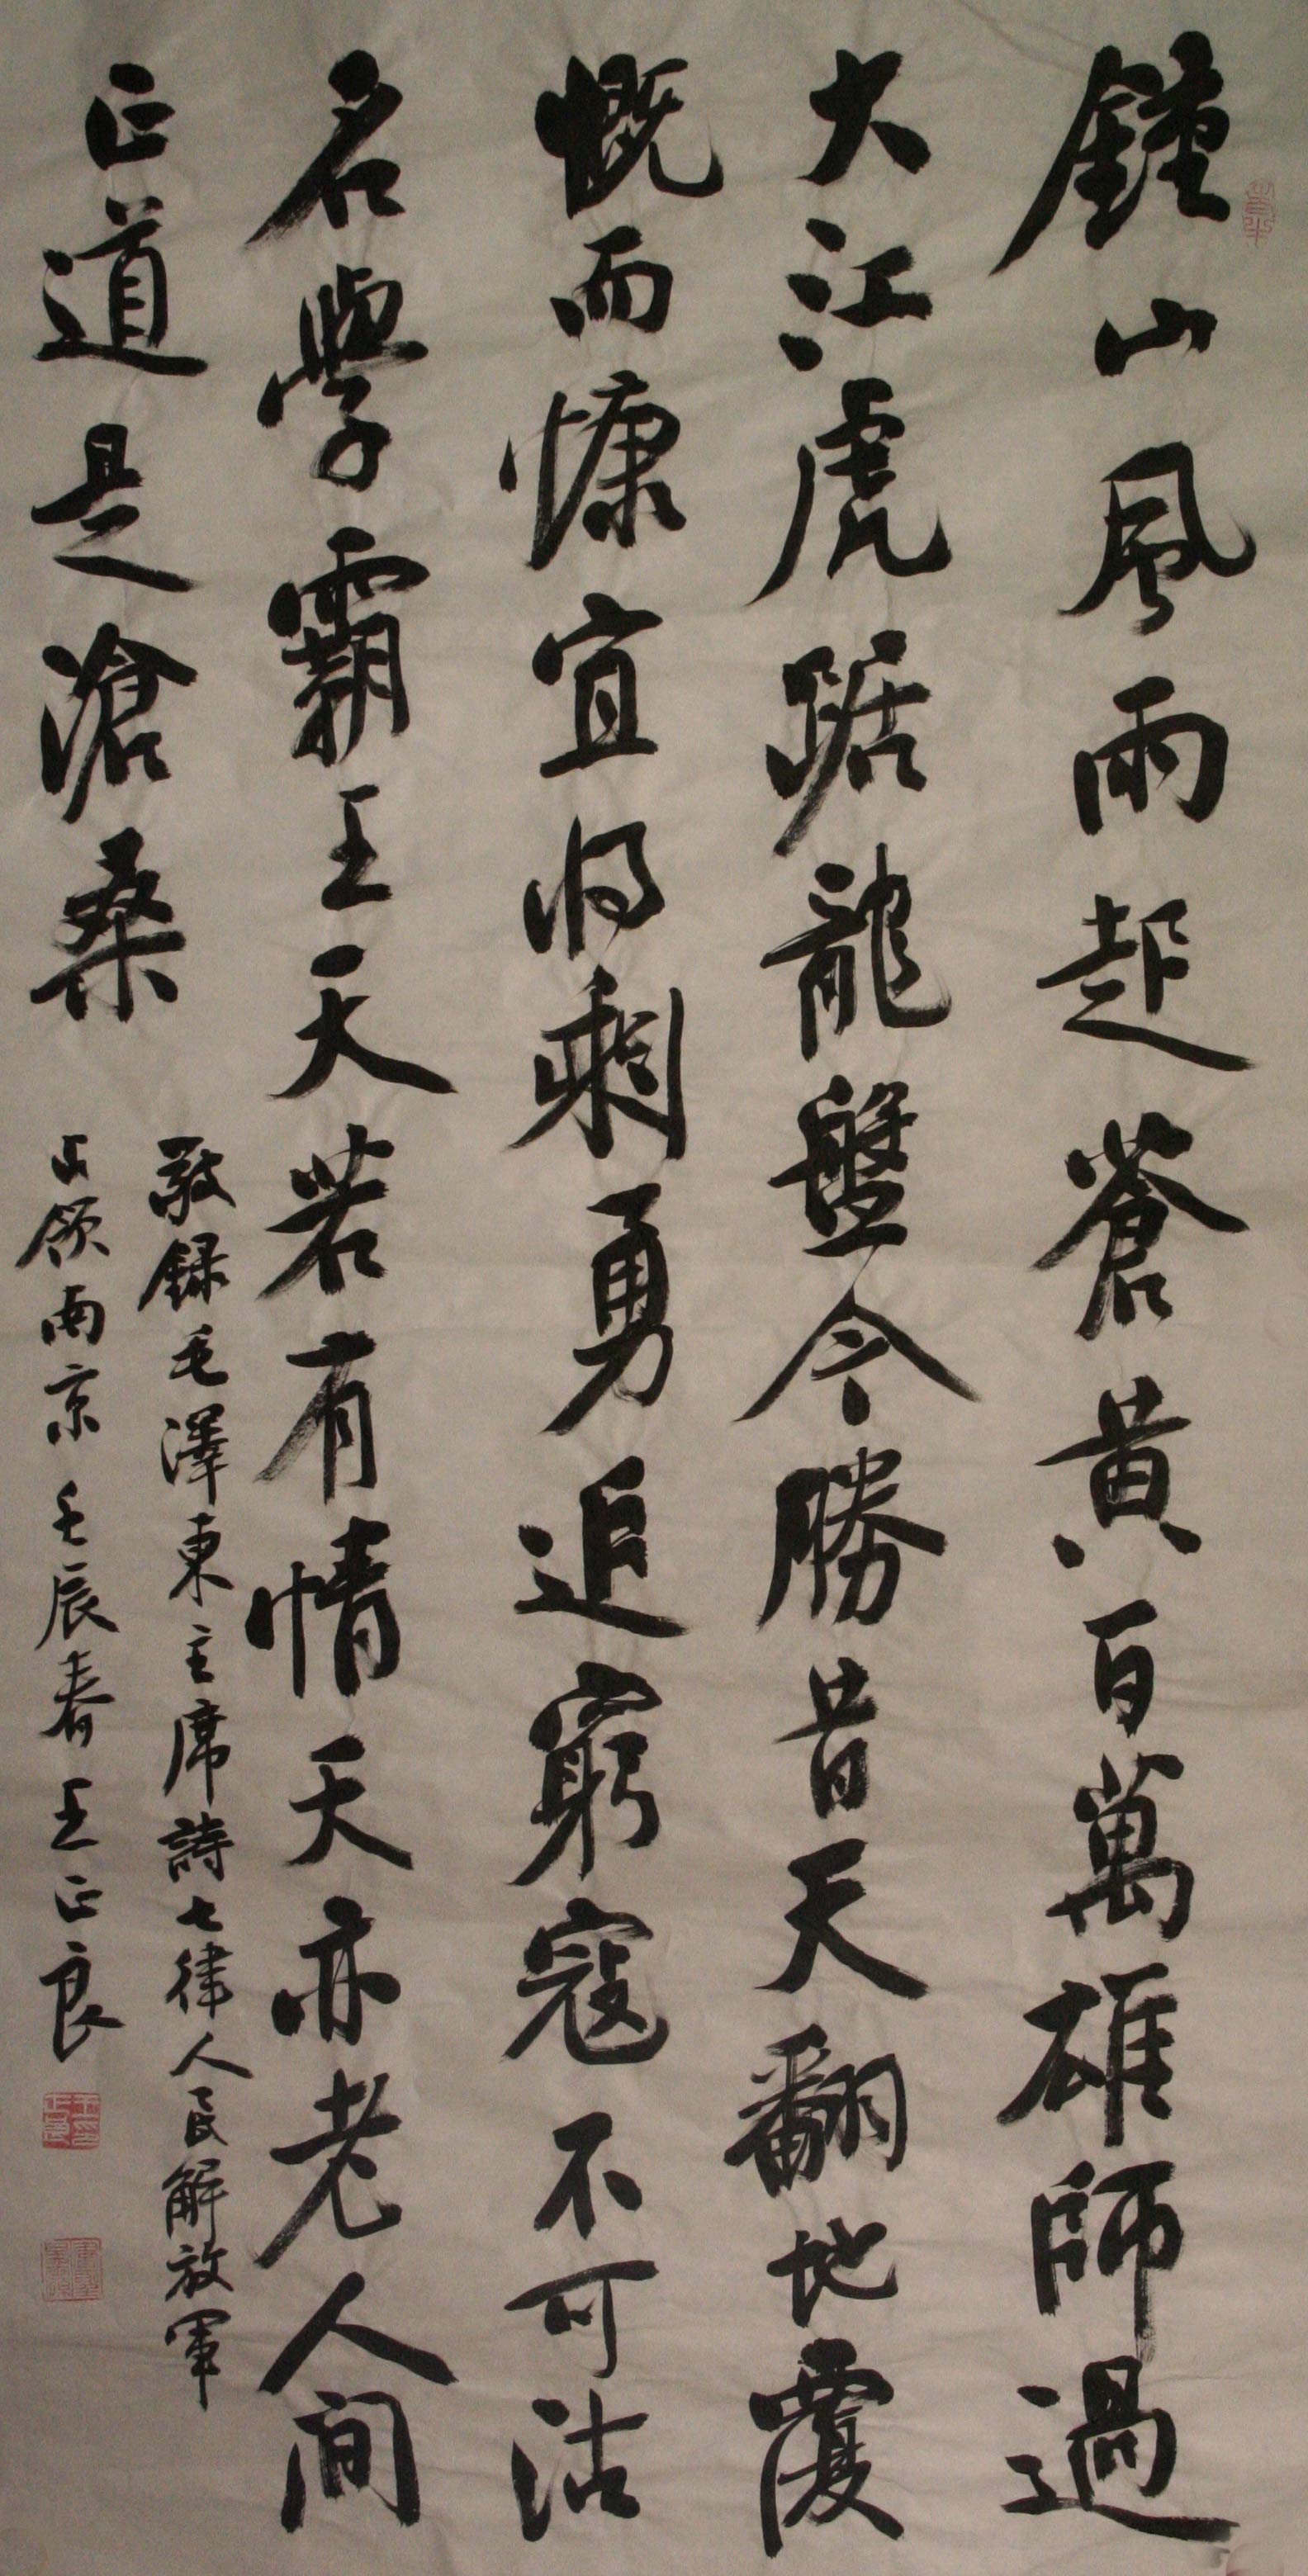 鍾山風雨起蒼黃百萬雄師過
大江虎踞龍盤今勝昔天翻地覆
慨而慷宜将剩勇追窮寇不可沽
名學霸王天若有情天亦老人間
正道是滄桑
敬録毛澤東主席詩七律人民解放軍
占領南京 壬辰春 王正良